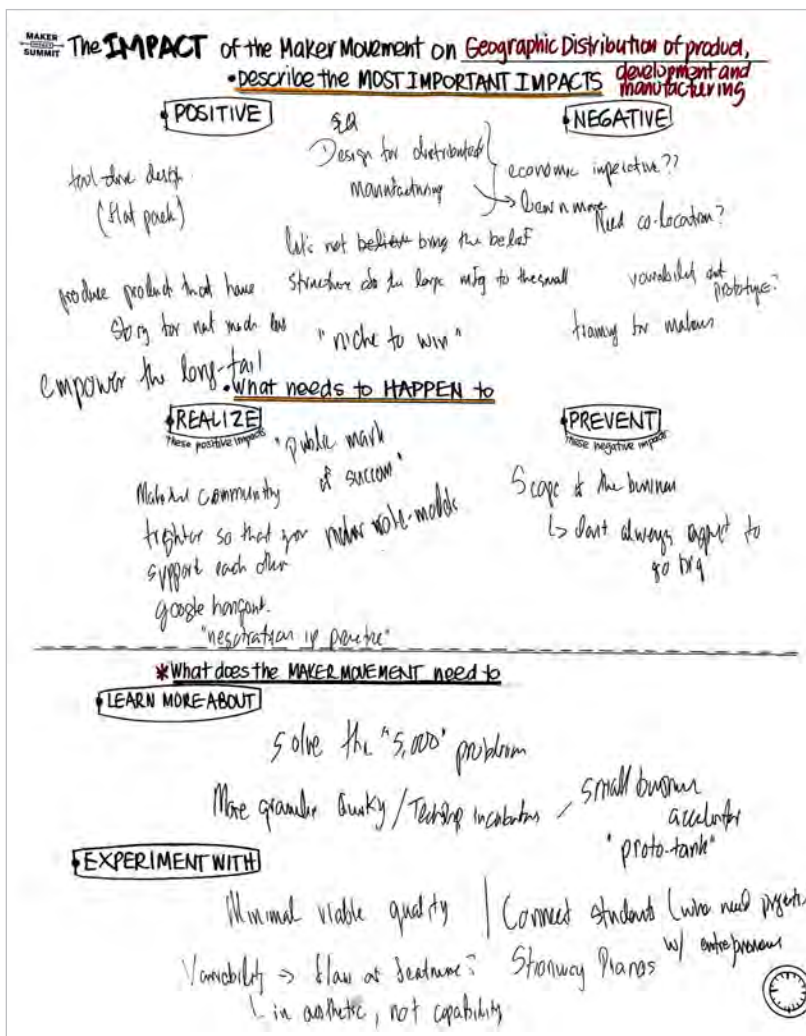 MAKER
IMPACT
SUMMIT
The IMPACT of the Maker Movement on Geographic Distribution of product,
development and
manufacturing
• Describe the MOST IMPORTANT IMPACTS
POSITIVE
NEGATIVE
Design for distributed
manufacturing
(flat pack)
economic imperative??
→ learn more
Need co-location?
let's not believe bring the belief
structure the large mfg to the small
produce product that have
story for not much less
"niche to win"
prototype?
training for makers
empower the long-tail
• What needs to HAPPEN to
REALIZE
these positive impacts
PREVENT
these negative impacts
"public mark
of success"
community
together so that you
support each other
google hangout.
role-models
"negotiation practice"
Scope of the business
↳ don't always expect to
go big
*What does the MAKER MOVEMENT need to
LEARN MORE ABOUT
solve the "5,000" problem
More granular Quirky / Techshop incubators / small business
accelerator
"proto-tank"
EXPERIMENT WITH
Minimal viable quality
Connect students (who need projects)
w/ entrepreneurs
Variability → flaw or feature?
↳ in aesthetic, not capability
Pianos